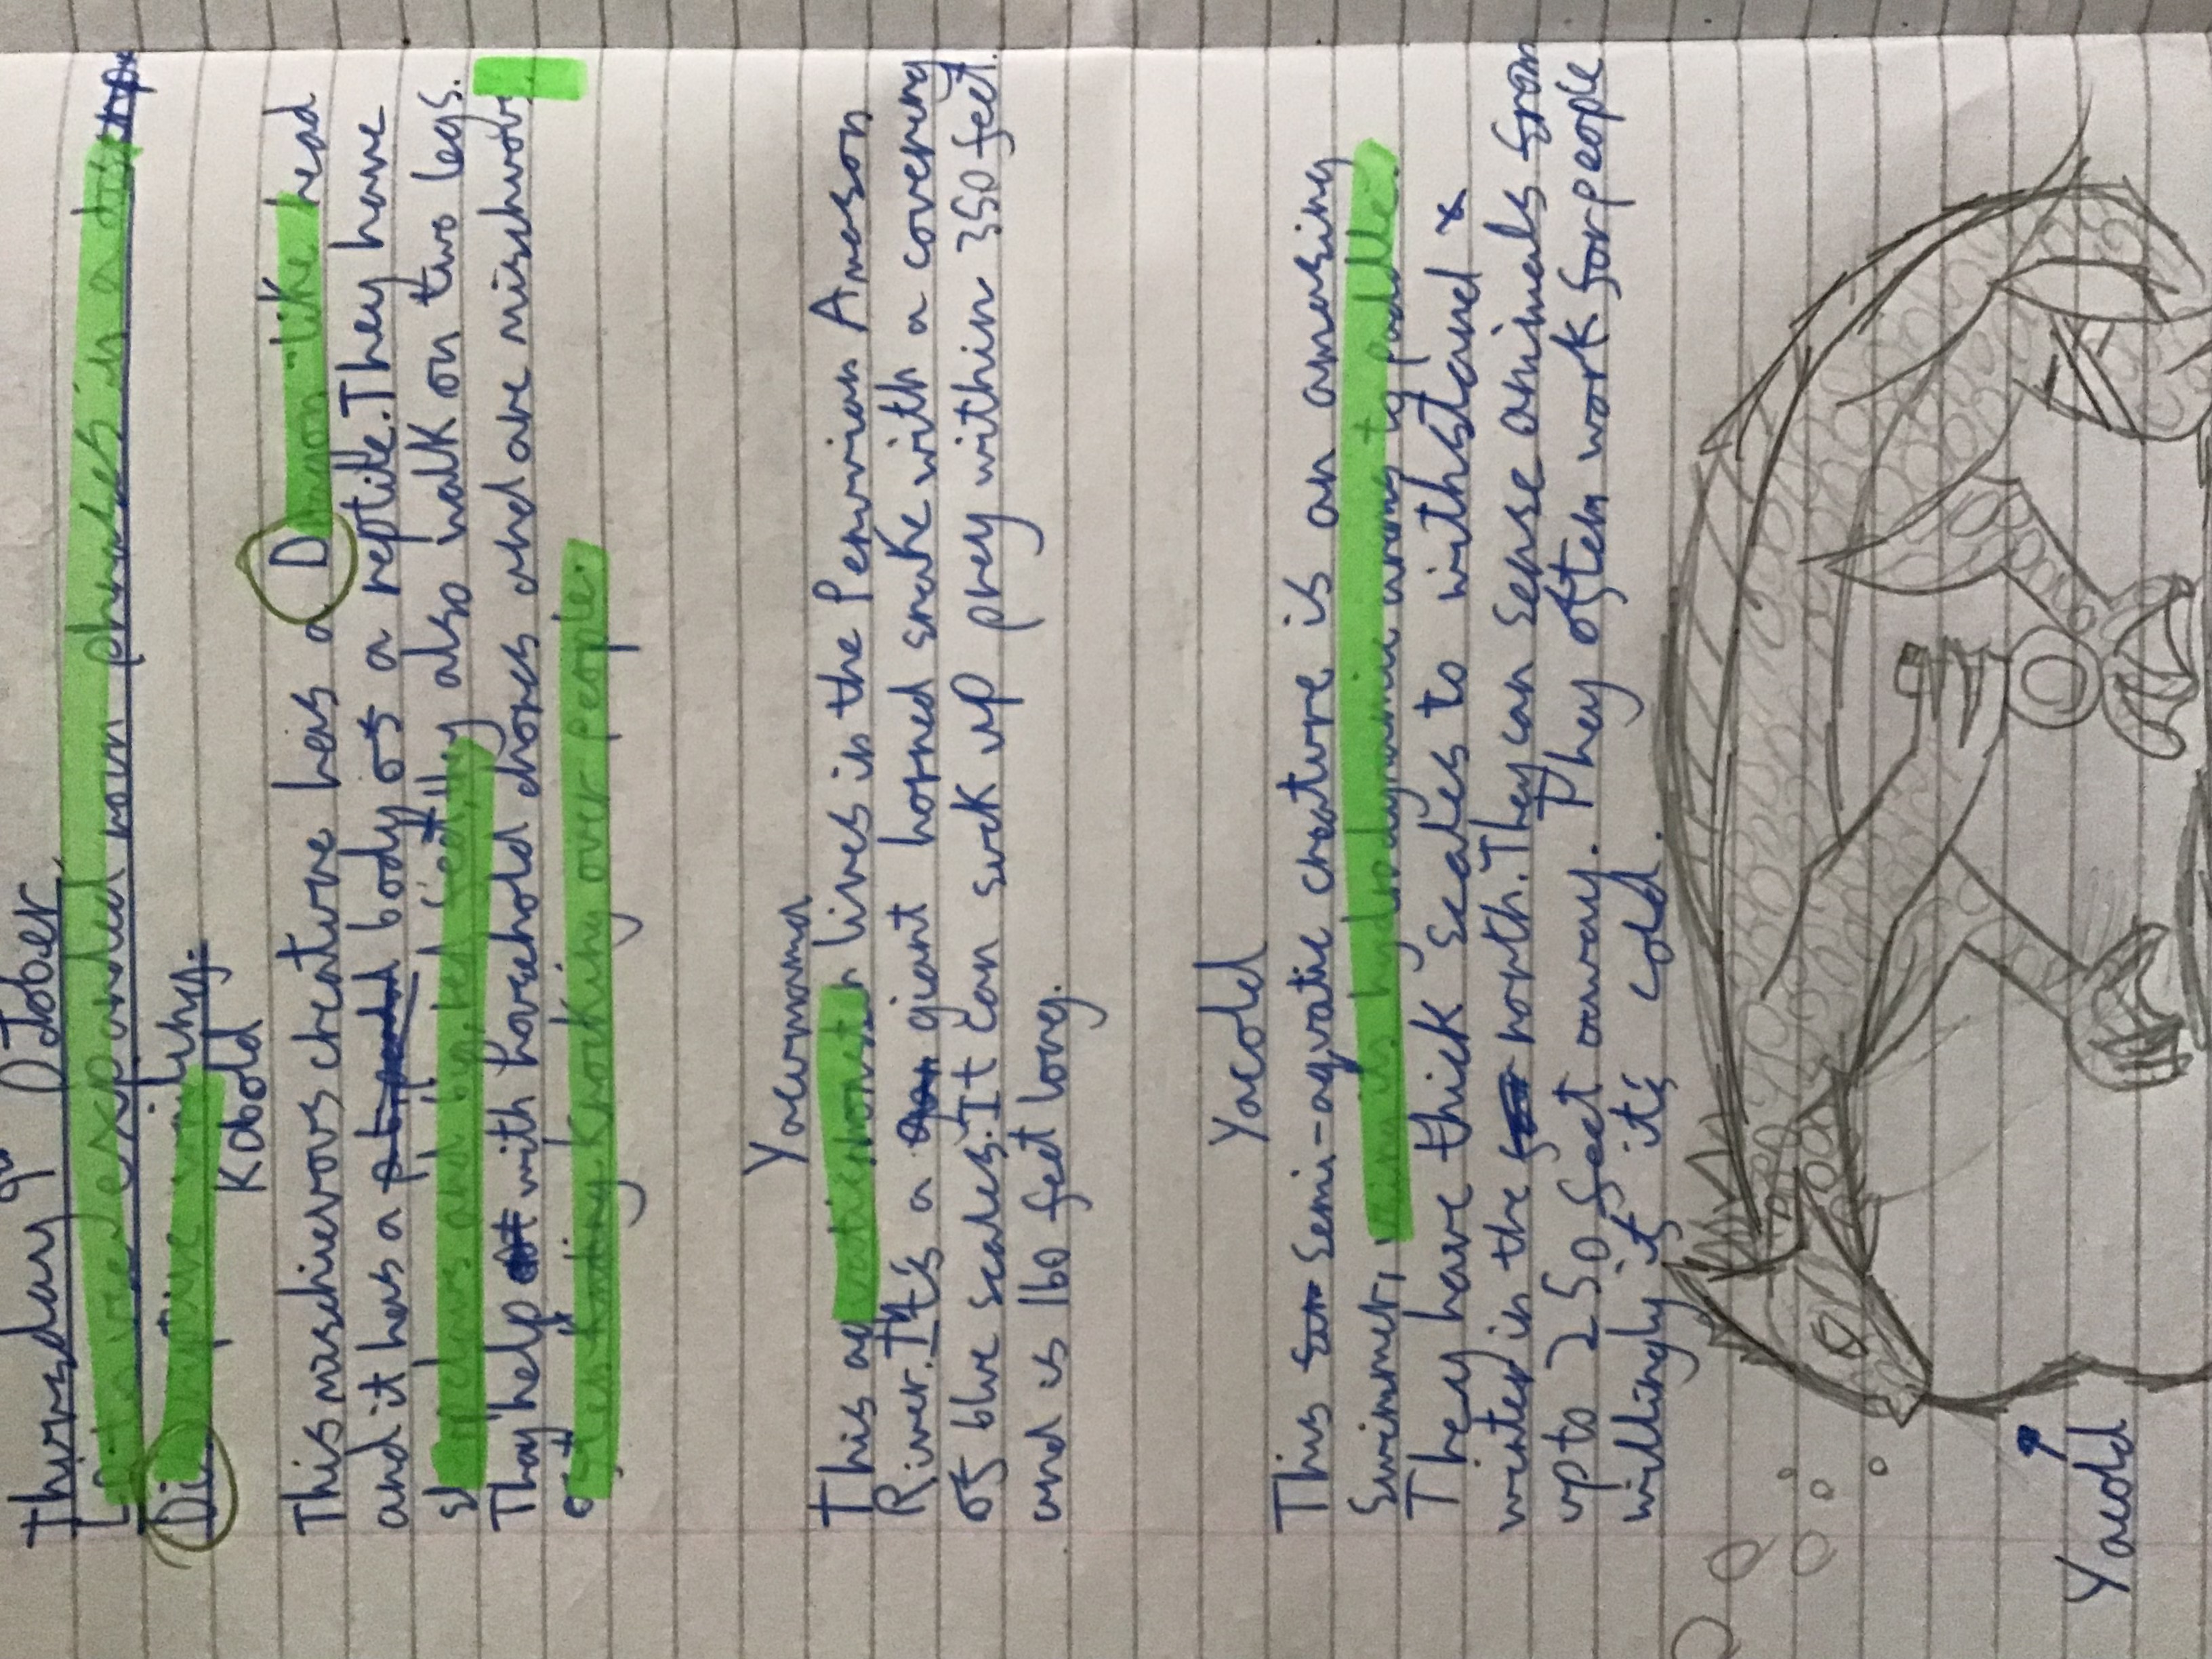 Thursday 9th October
L.O to use expanded noun phrases in a
Descriptive writing.
Kobold
This mischievous creature has a Dragon-like head
and it has a body of a reptile. They have
sharp claws and big, red feet, they also walk on two legs.
They help with household chores and are mischivous
often knocking over people.
Yacumama
This aquatic monster lives in the Peruvian Amason
River. It's a giant horned snake with a covering
of blue scales. It can suck up prey within 350 feet
and is 160 feet long.
Yacold
This semi-aquatic creature is an amasing
Swimmer, using is hydrodynamic arms to paddle.
They have thick scales to withstand
winter in the north. They can sense animals from
up to 250 feet away. They often work for people
willingly if it's cold.
Yacold